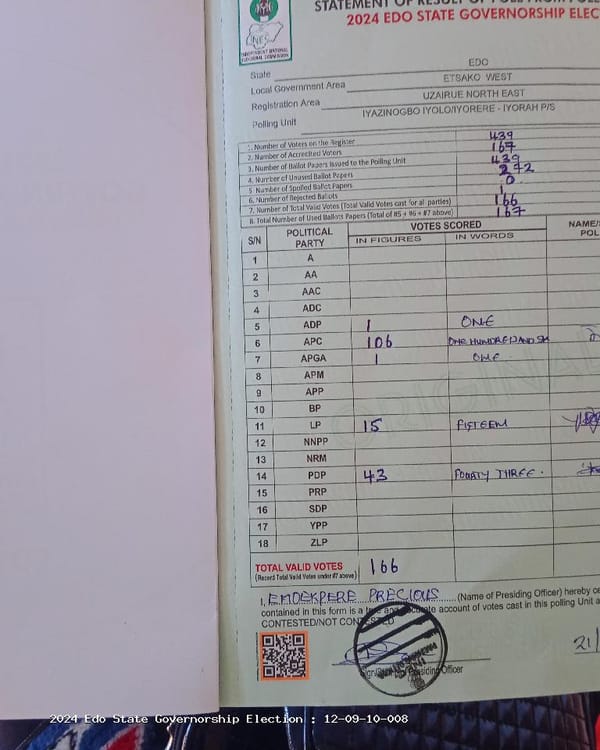 STATEMENT OF RESULT OF POLL FROM
2024 EDO STATE GOVERNORSHIP ELEC
INEC
INDEPENDENT NATIONAL ELECTORAL COMMISSION
State EDO
Local Government Area ETSAKO WEST
Registration Area UZAIRUE NORTH EAST
Polling Unit IYAZINOGBO IYOLO/IYORERE - IYORAH P/S
1. Number of Voters on the Register 439
2. Number of Accredited Voters 167
3. Number of Ballot Papers Issued to the Polling Unit 439
4. Number of Unused Ballot Papers 272
5 Number of Spoiled Ballot Papers 0
6. Number of Rejected Ballots 1
7. Number of Total Valid Votes (Total Valid Votes cast for all parties) 166
8. Total Number of Used Ballots Papers (Total of #5 + #6 + #7 above) 167
S/N POLITICAL PARTY VOTES SCORED NAME/
IN FIGURES IN WORDS POL
1 A
2 AA
3 AAC
4 ADC
5 ADP 1 ONE
6 APC 106 ONE HUNDRED AND SIX
7 APGA 1 ONE
8 APM
9 APP
10 BP
11 LP 15 FIFTEEN
12 NNPP
13 NRM
14 PDP 43 FOURTY THREE.
15 PRP
16 SDP
17 YPP
18 ZLP
TOTAL VALID VOTES 166
(Record Total Valid Votes under #7 above)
I, EMOEKPERE PRECIOUS (Name of Presiding Officer) hereby ce
contained in this form is a true and accurate account of votes cast in this polling Unit a
CONTESTED/NOT CONTESTED
Presiding Officer
21/
2024 Edo State Governorship Election : 12-09-10-008